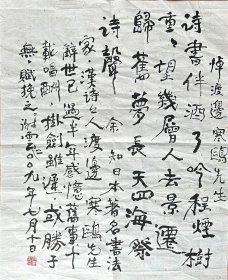 悼渡邊寒鷗先生
詩書伴酒了吟程煙樹
重重望幾層人去景遷
歸舊夢長天四海祭
詩聲 余知日本著名書法
家漢詩台人渡邊寒鷗先生
辭世已過半年感懷萬事
載唱酬掛劍雖遲或勝于
無賦挽之
二〇〇九年七月十日